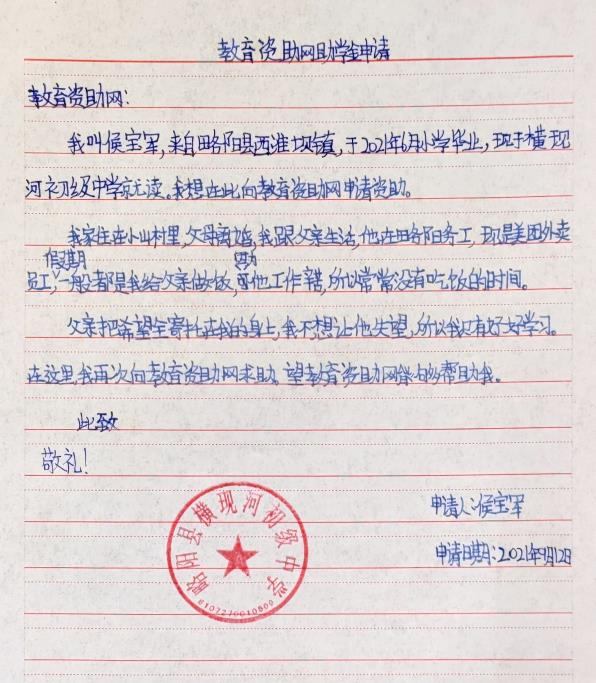 教育资助网助学金申请
教育资助网：
我叫侯宝军，来自略阳县西淮坝镇，于2021年6月小学毕业，现于横现
河初级中学就读。我想在此向教育资助网申请资助。
我家住在小山村里，父母离婚，我跟父亲生活，他在略阳务工，现是美团外卖
假期
员工，一般都是我给父亲做饭，可他工作辛苦，所以常常没有吃饭的时间。
父亲把希望全寄托在我的身上，我不想让他失望，所以我只有好好学习。
在这里，我再次向教育资助网求助。望教育资助网能够帮助我。
此致
敬礼！
申请人：侯宝军
申请日期：2021年9月12日
略阳县横现河初级中学